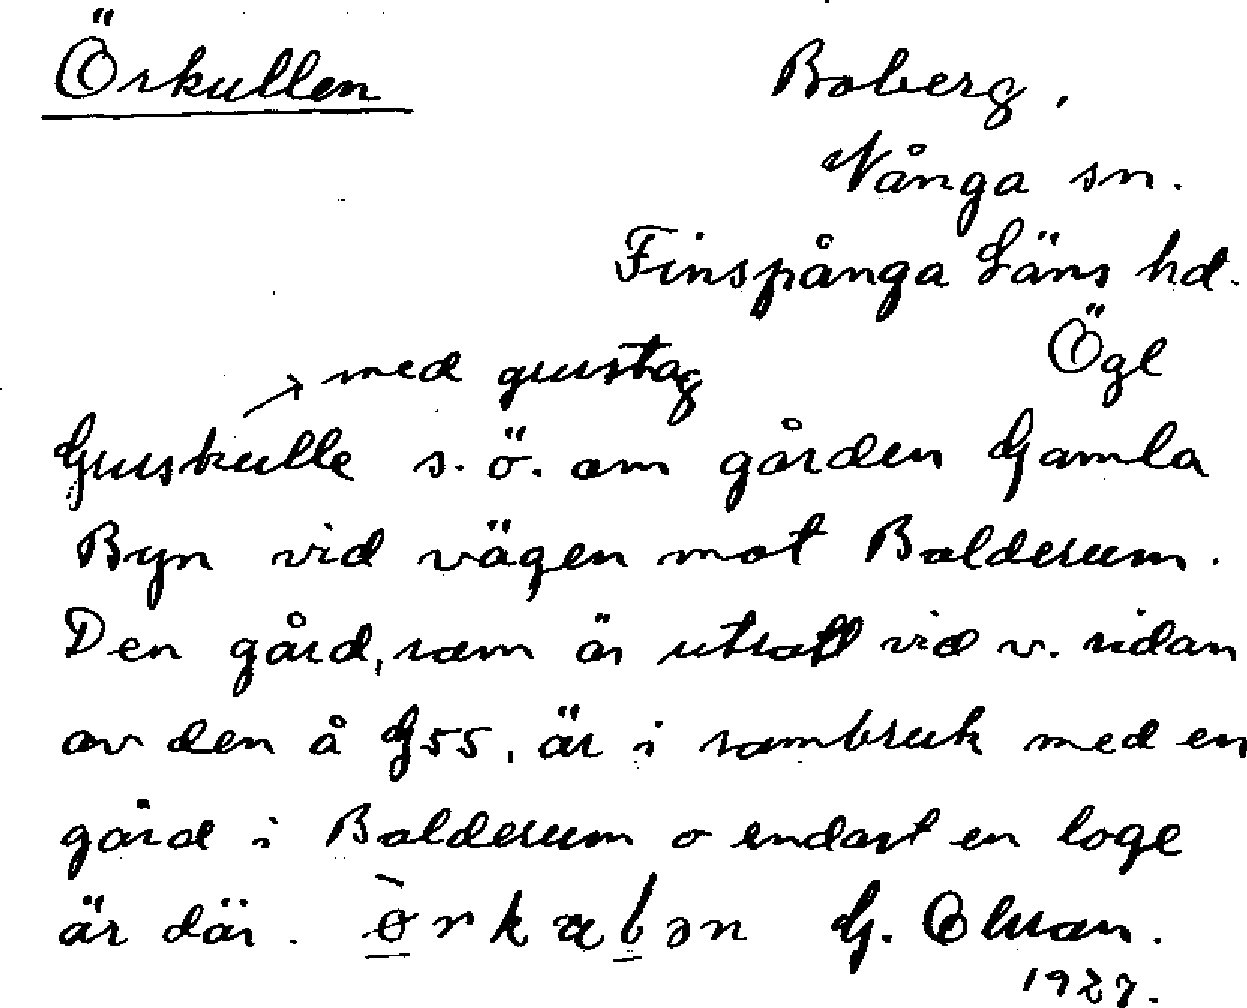 Örkullen
Boberg.
Vånga sn.
Finspånga Läns hd.
Ögl
med grustag
Gruskulle s.ö. om gården Gamla
Byn vid vägen mot Bolderum.
Den gård, som är utsatt vid v. sidan
av den å G55, är i sambruk med en
gård i Bolderum o endast en loge
är där. G. Olsson.
1927.